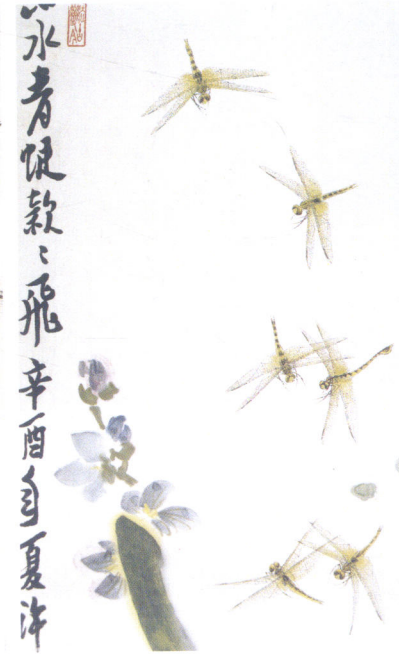 水青蜓款〻飛辛酉年夏